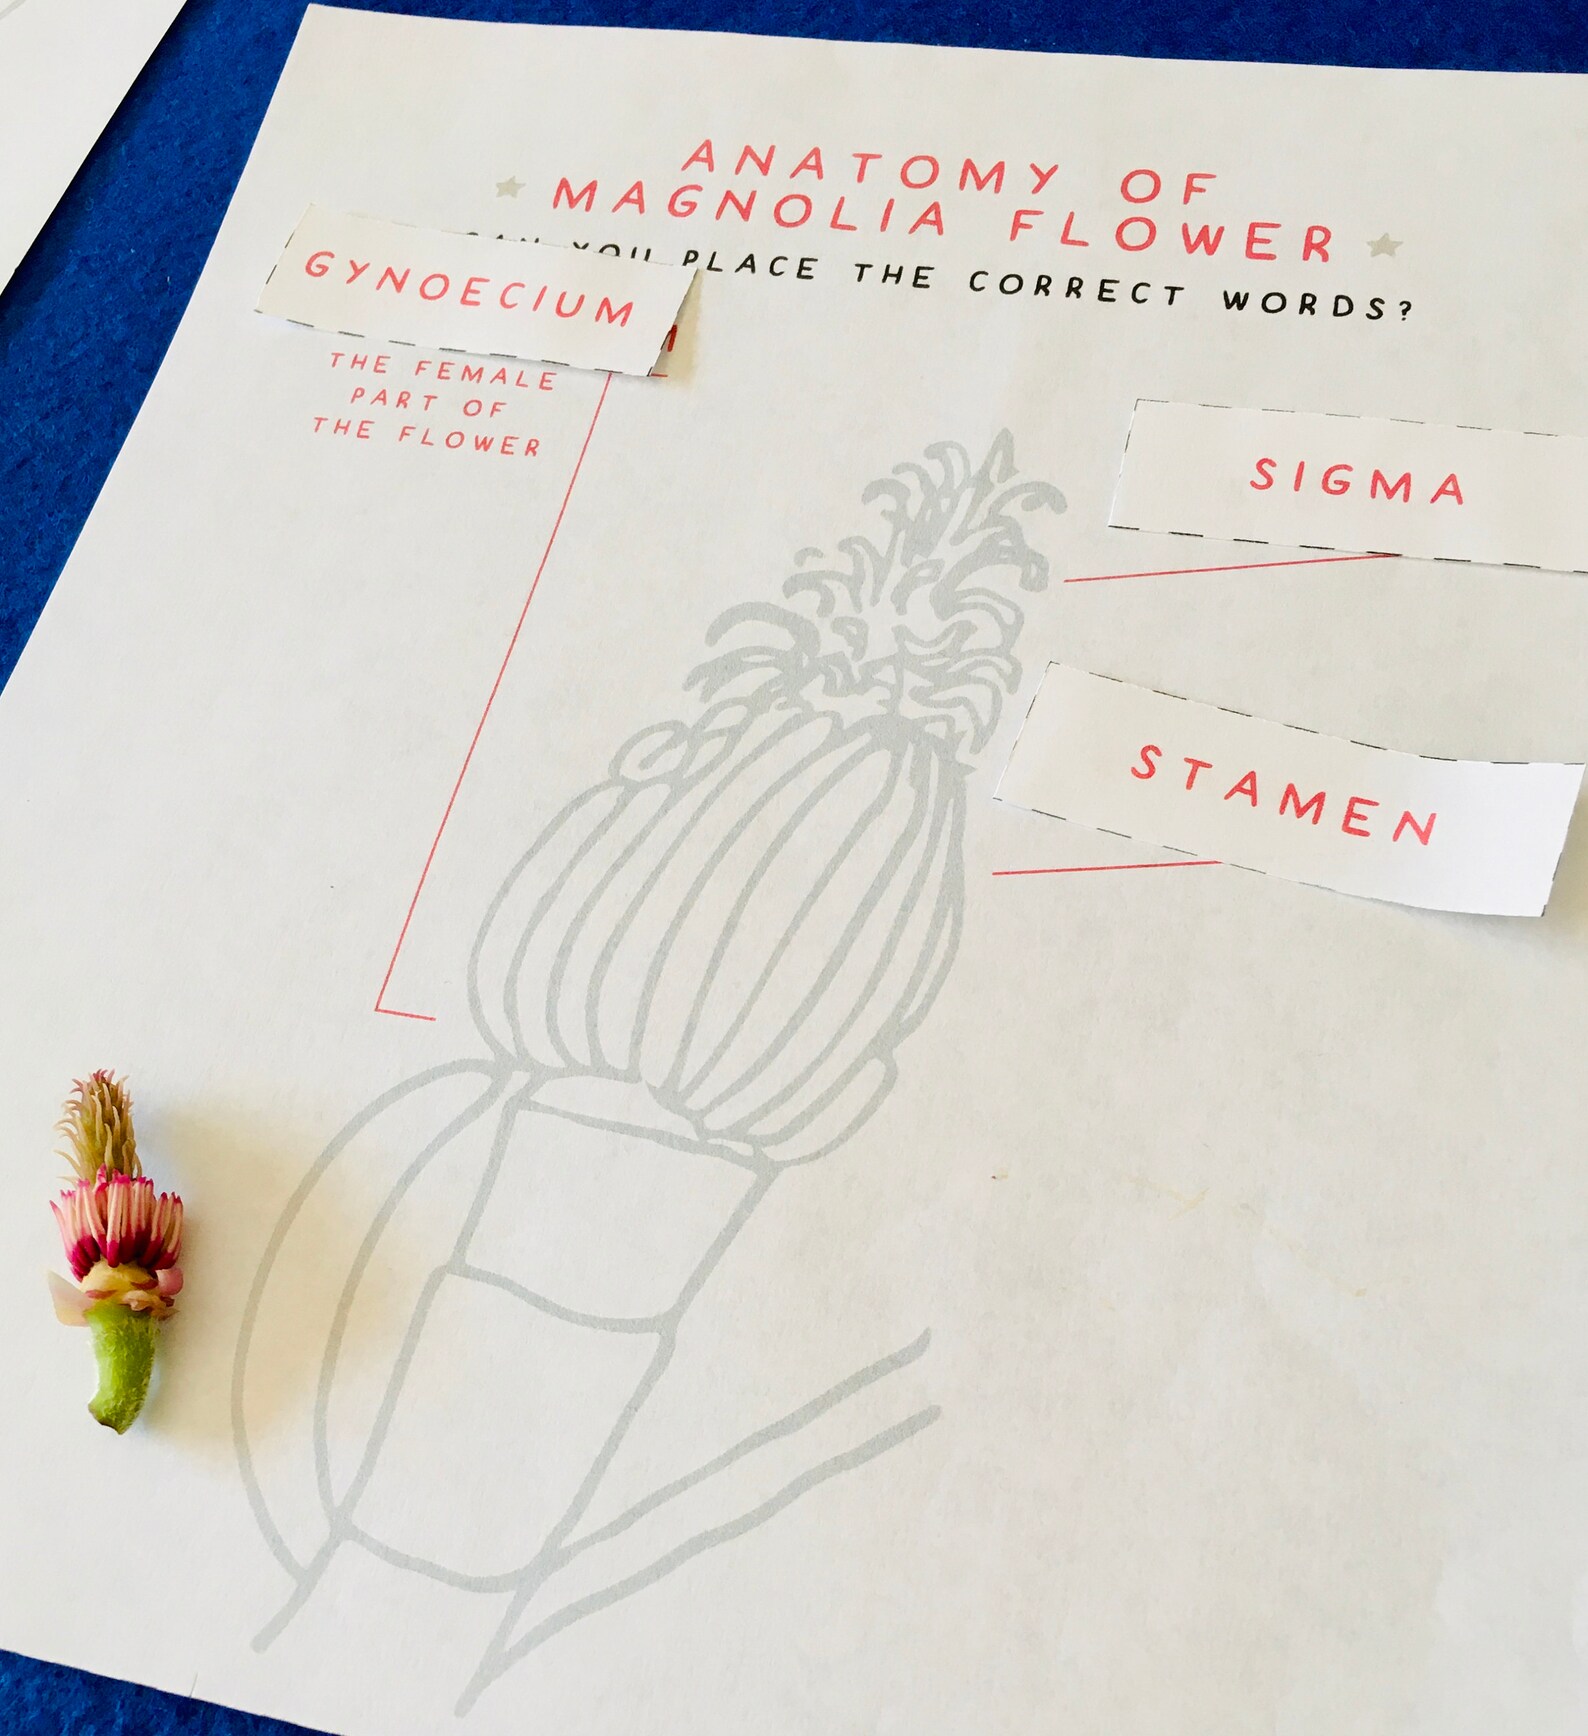 ANATOMY OF
MAGNOLIA FLOWER
YOU PLACE THE CORRECT WORDS?
GYNOECIUM
THE FEMALE
PART OF
THE FLOWER
SIGMA
STAMEN